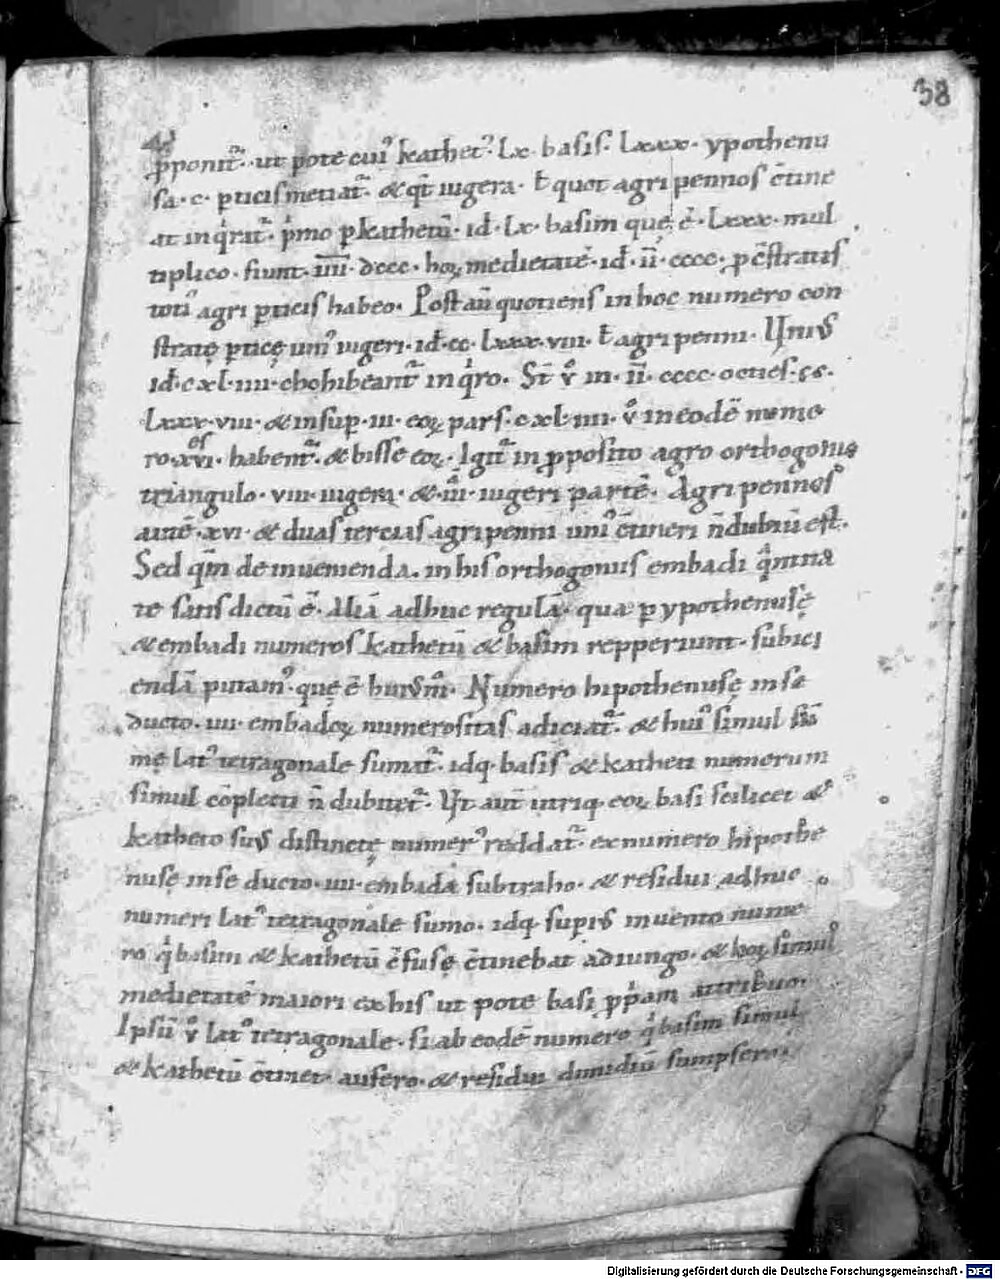 38
p̄ponit᷑. ut pote cui᷒ kathet᷒. lx. basis. lxxx. ypothenu
sa. c. ꝑticis metiat᷑. & qͥt iugera. ł quot agripennos c̄tine
at inqͥrat᷑. pͥmo ꝑ kathetū. id. lx. basim quę ē. lxxx. mul
tiplico. fiunt. īīīī. dccc. hoꝝ medietatē. id ÷ īī. cccc. ꝓ c̄stratis
toti᷒ agri ꝑticis habeo. Post aū quotiens in hoc numero con
stratę ꝑticę uni᷒ iugeri. id ÷ cc. lxxx.viii. ł agripenni. Uni᷒
id ÷ cxl.iiii. cohibeant᷑ inqͥro. S̄t v̊ in. īī. cccc. octies. cc.
lxxx.viii. & insuꝑ. iii. eoꝝ pars. cxl.iiii. v̊ in eodē nume
ro. xvi.es habent᷑. & bisse eoꝝ. Igit᷑ in p̄posito agro orthogonio
triangulo. viii. iugera. & iii. iugeri partē. Agripennos
autē. xvi. & duas tercias agripenni uni᷒ c̄tineri n̄ dubiū est.
Sed qm̄ de inuenienda. in his orthogonus embadi qͣntita
te satis dictū ē. Aliā adhuc regulā. qua ꝑ ypothenusę
& embadi numeros kathetū & basim repperiunt. subici
endā putam᷒. quę ē hui᷒m̊. Numero hipothenusę in se
ducto. iiii. embadoꝝ numerositas adiciat᷑. & hui᷒ simul sū
mę lat᷒ tetragonale sumat᷑. idq; basis & katheti numerum
simul cōplecti n̄ dubitet᷑. Ut aut̄ utriq; eoꝝ basi scilicet &
katheto suus distinctę numer᷒ reddat᷑. ex numero hipothe
nusę in se ducto. iiii. embada subtraho. & residui adhuc
numeri lat᷒ tetragonale sumo. idq; superi᷒ inuento nume
ro qͥ basim & kathetū c̄fusę c̄tinebat adiungo. & hoꝝ simul
medietatē maiori ex his ut pote basi ꝓpͥam attribuo.
Ipsū v̊ lat᷒ tetragonale. si ab eodē numero qͥ basim simul
& kathetū c̄tinet. aufero. & residui dimidiū sumpsero.
Digitalisierung gefördert durch die Deutsche Forschungsgemeinschaft - DFG